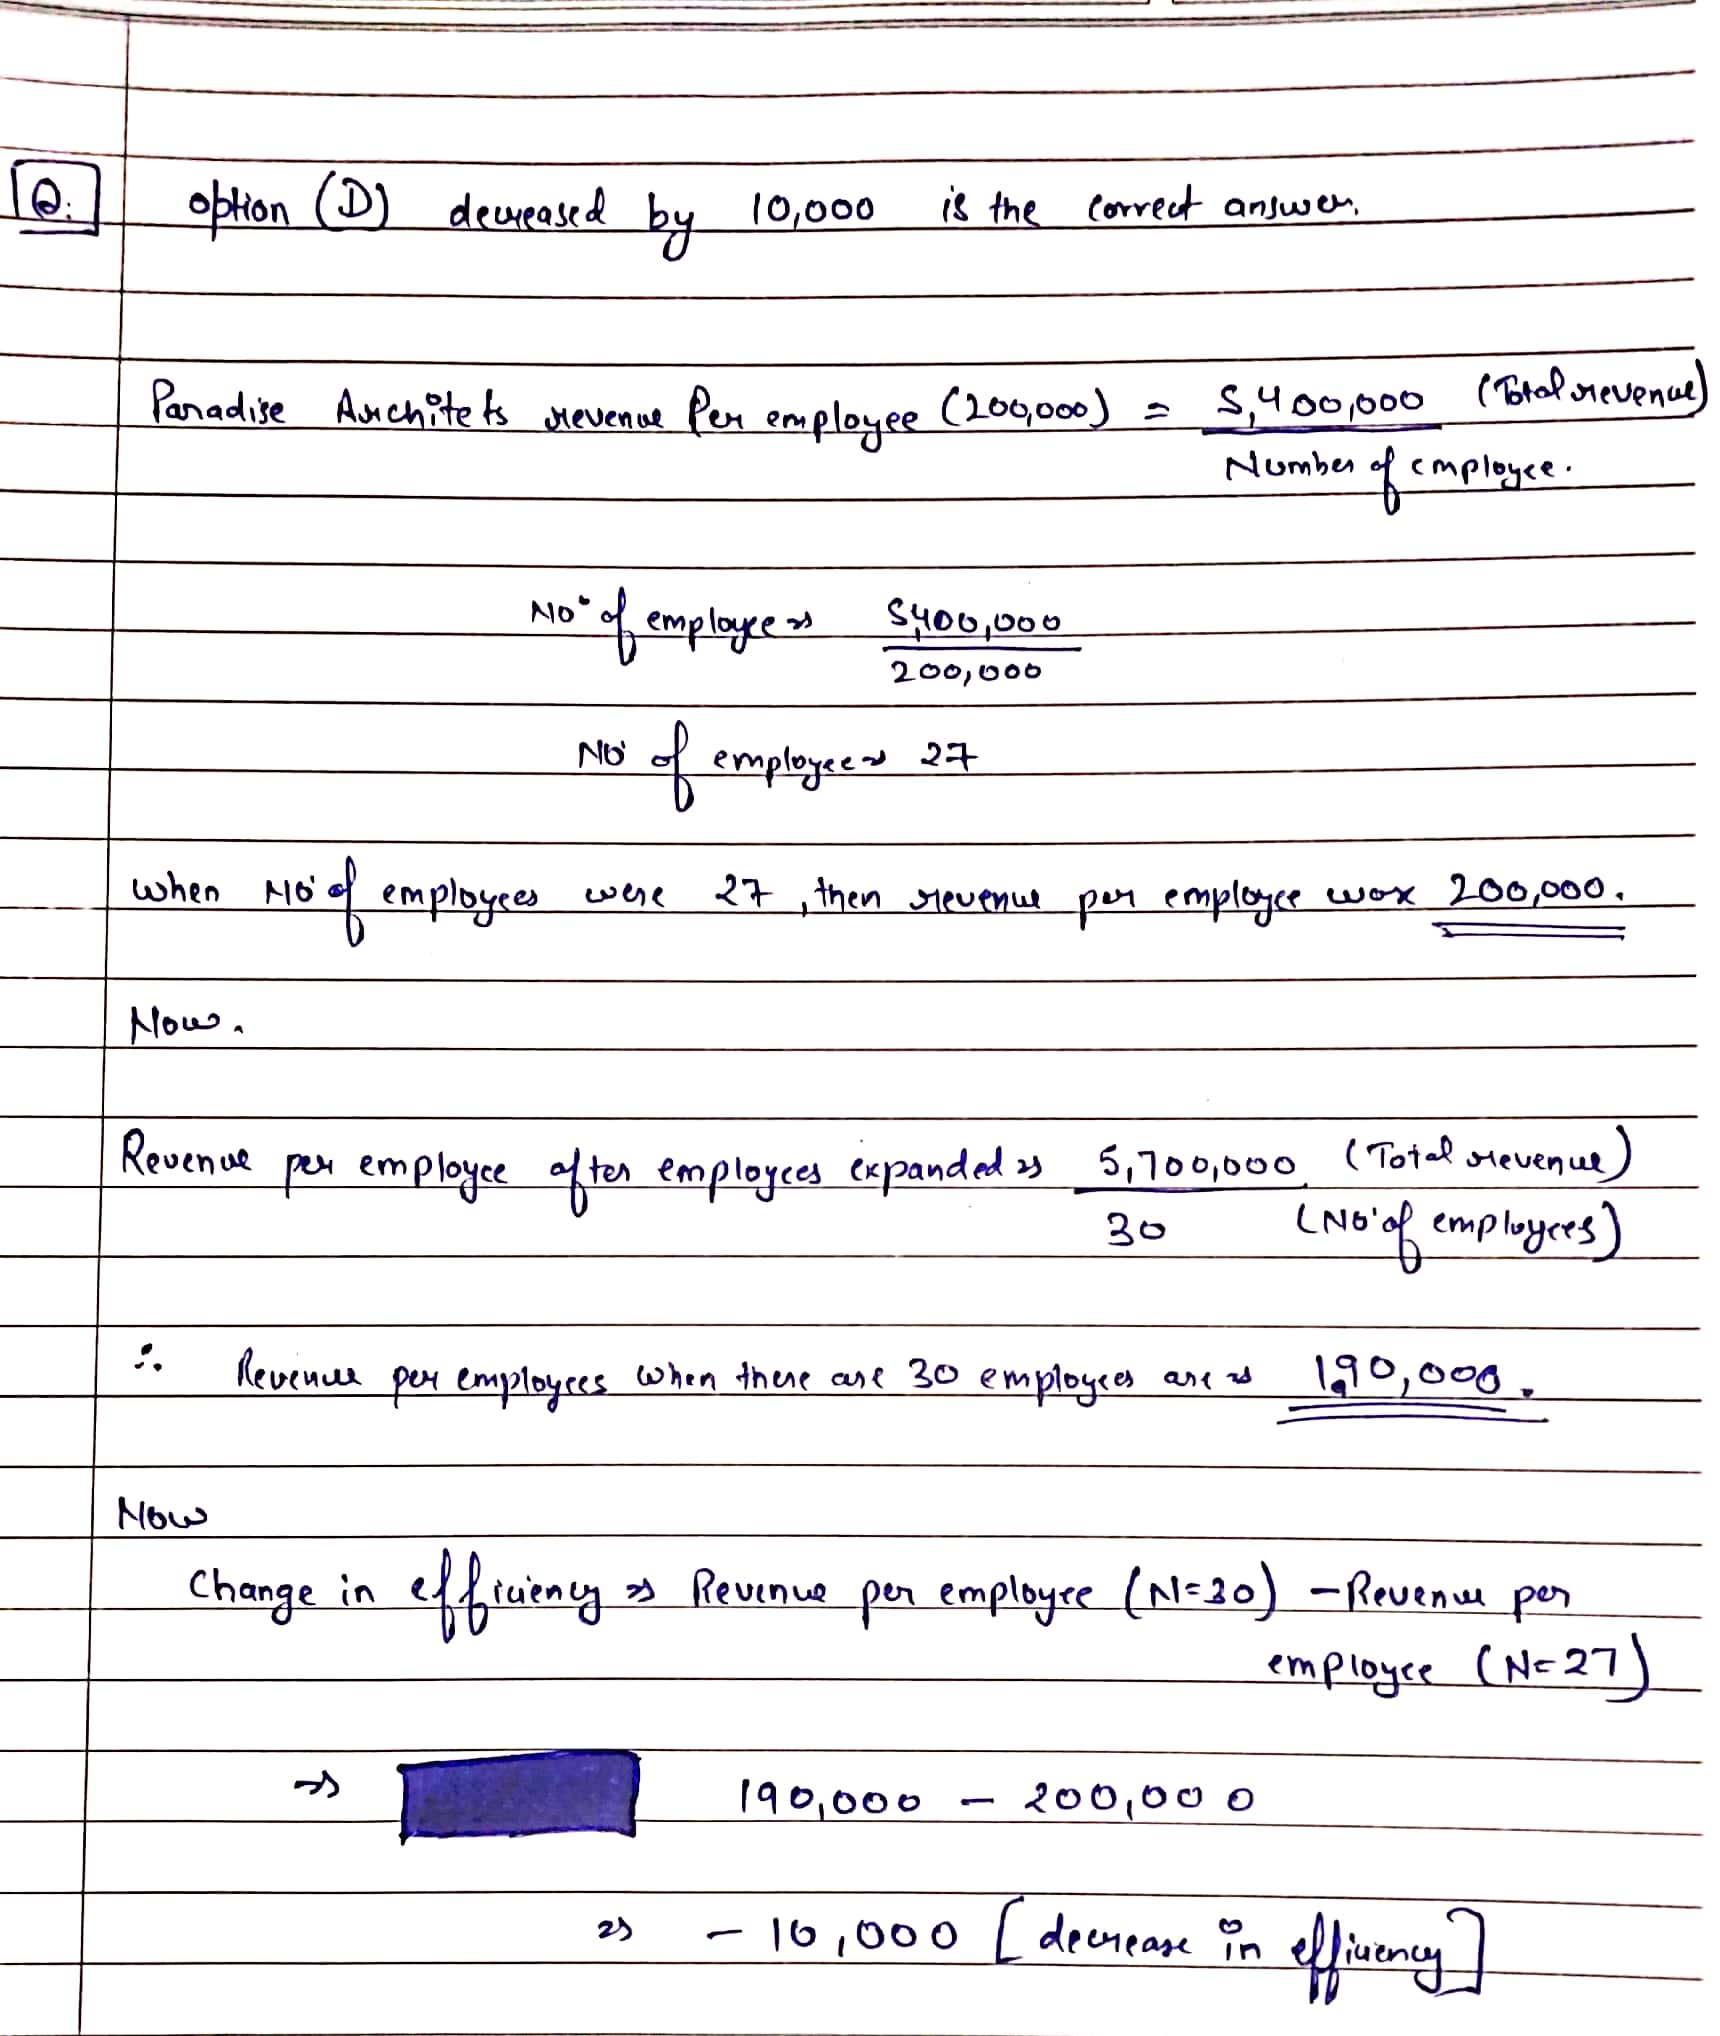 Q.
option (D) decreased by 10,000 is the correct answer.
Paradise Architets revenue Per employee (200,000) = 5,400,000 (Total revenue)
Number of employee.
No. of employee ⇒ 5,400,000
200,000
No. of employee ⇒ 27
when No. of employees were 27, then revenue per employee wox 200,000.
Now.
Revenue per employee after employees expanded ⇒ 5,700,000 (Total revenue)
30 (No. of employees)
∴ Revenue per employees when there are 30 employees are ⇒ 190,000.
Now
Change in efficiency ⇒ Revenue per employee (N=30) - Revenue per
employee (N=27)
⇒ 190,000 - 200,000
⇒ - 10,000 [decrease in efficiency]